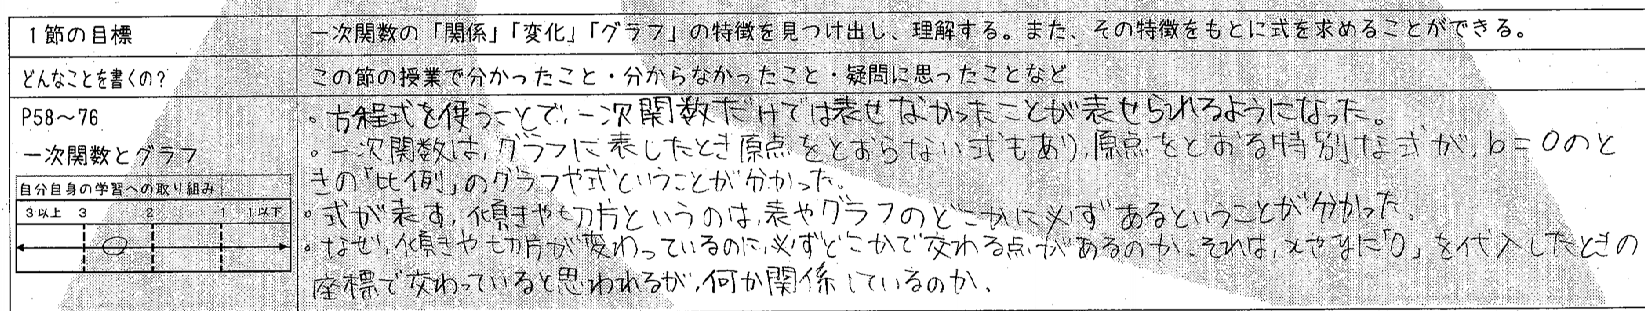 1節の目標
一次関数の「関係」「変化」「グラフ」の特徴を見つけ出し、理解する。また、その特徴をもとに式を求めることができる。
どんなことを書くの?
この節の授業で分かったこと・分からなかったこと・疑問に思ったことなど
P58～76
一次関数とグラフ
自分自身の学習への取り組み
3以上 3 2 1 1以下
・方程式を使うことで、一次関数だけでは表せなかったことが表せられるようになった。
・一次関数は、グラフに表したとき原点をとおらない式もあり、原点をとおる特別な式が、b=0のと
きの「比例」のグラフや式ということが分かった。
・式が表す、傾きや切片というのは、表やグラフのどこかに必ずあるということが分かった。
・なぜ、傾きや切片が変わっているのに、必ずどこかで交わる点があるのか、それは、xやyに「0」を代入したときの
座標で交わっていると思われるが、何か関係しているのか、